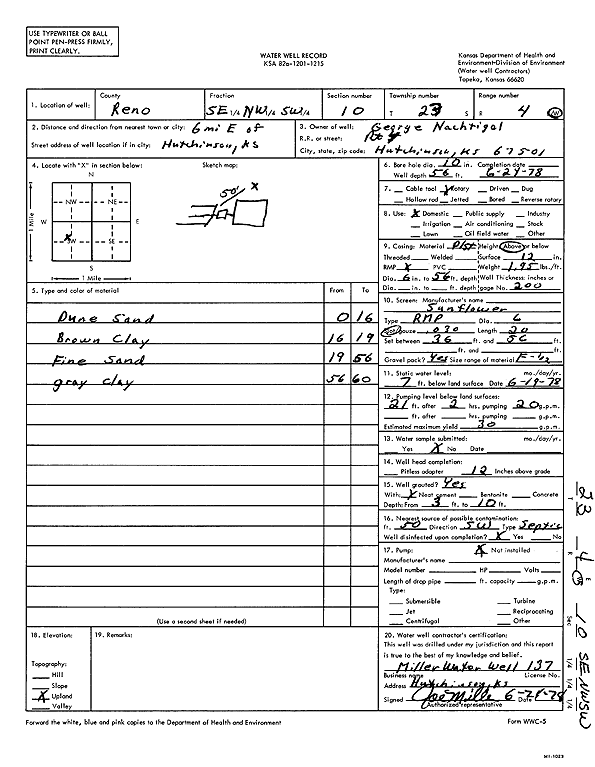 USE TYPEWRITER OR BALL
POINT PEN-PRESS FIRMLY,
PRINT CLEARLY.
WATER WELL RECORD
KSA 82a-1201-1215
Kansas Department of Health and
Environment-Division of Environment
(Water well Contractors)
Topeka, Kansas 66620
1. Location of well: County Reno Fraction SE 1/4 NW 1/4 SW 1/4 Section number 10 Township number T 23 S Range number R 4 E/W
2. Distance and direction from nearest town or city: 6 mi E of
Street address of well location if in city: Hutchinson, KS
3. Owner of well: George Nachtigal
R.R. or street:
City, state, zip code: Hutchinson, KS 67501
4. Locate with "X" in section below: Sketch map:
N
NW NE
W E
SW SE
S
1 Mile
1 Mile
50' X
5. Type and color of material From To
Dune Sand 0 16
Brown Clay 16 19
Fine Sand 19 56
gray Clay 56 60
(Use a second sheet if needed)
6. Bore hole dia. 10 in. Completion date
Well depth 56 ft. 6-24-78
7. Cable tool X Rotary Driven Dug
Hollow rod Jetted Bored Reverse rotary
8. Use: X Domestic Public supply Industry
Irrigation Air conditioning Stock
Lawn Oil field water Other
9. Casing: Material Plst Height: Above or below
Threaded Welded Surface 12 in.
RMP X PVC Weight 1.95 lbs./ft.
Dia. 6 in. to 56 ft. depth Wall Thickness: inches or
Dia. in. to ft. depth gage No. 200
10. Screen: Manufacturer's name
Sunflower
Type RMP Dia. 6
Slot/gauze .030 Length 20
Set between 36 ft. and 56 ft.
ft. and ft.
Gravel pack? Yes Size range of material
11. Static water level: mo./day/yr.
7 ft. below land surface Date 6-19-78
12. Pumping level below land surfaces:
21 ft. after 2 hrs. pumping 20 g.p.m.
ft. after hrs. pumping g.p.m.
Estimated maximum yield 30 g.p.m.
13. Water sample submitted: mo./day/yr.
Yes X No Date
14. Well head completion:
Pitless adapter 12 Inches above grade
15. Well grouted? Yes
With: X Neat cement Bentonite Concrete
Depth: From 3 ft. to 10 ft.
16. Nearest source of possible contamination:
ft. 50 Direction SW Type Septic
Well disinfected upon completion? X Yes No
17. Pump: X Not installed
Manufacturer's name
Model number HP Volts
Length of drop pipe ft. capacity g.p.m.
Type:
Submersible Turbine
Jet Reciprocating
Centrifugal Other
18. Elevation:
Topography:
Hill
Slope
X Upland
Valley
19. Remarks:
20. Water well contractor's certification:
This well was drilled under my jurisdiction and this report
is true to the best of my knowledge and belief.
Miller Water Well 137
Business name License No.
Address Hutchinson, KS
Signed Joe Miller Date 6-24-78
Authorized representative
Forward the white, blue and pink copies to the Department of Health and Environment
Form WWC-5
T 23 R 4 E W Sec 10 SE NW SW 1/4 1/4 1/4